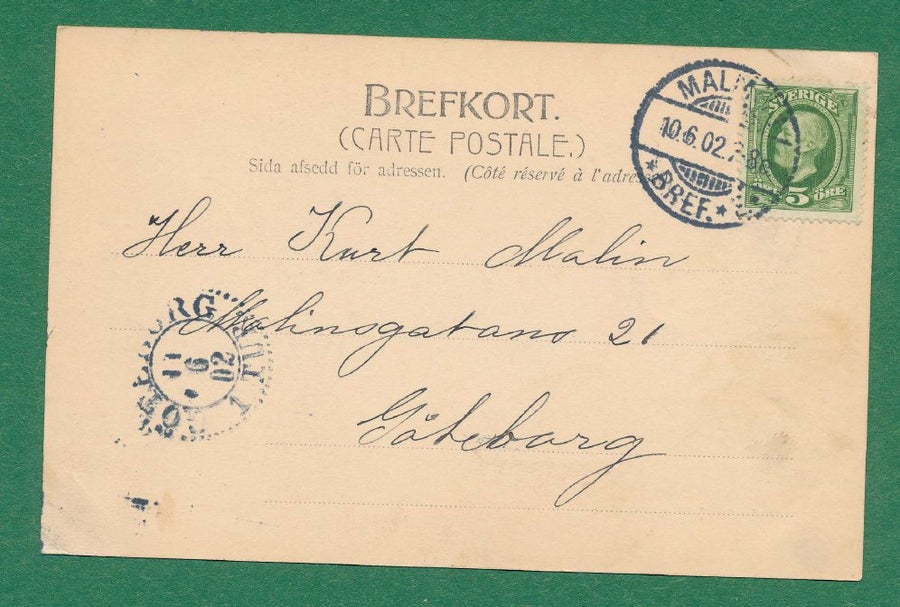 BREFKORT.
(CARTE POSTALE.)
Sida afsedd för adressen. (Côté réservé à l'adres
MALM
10.6.02.
★BREF.★
SVERIGE
5 ÖRE
Herr Kurt Malin
Malinsgatano 21
Göteborg
GÖTEBORG
11
6
02
1 TUR